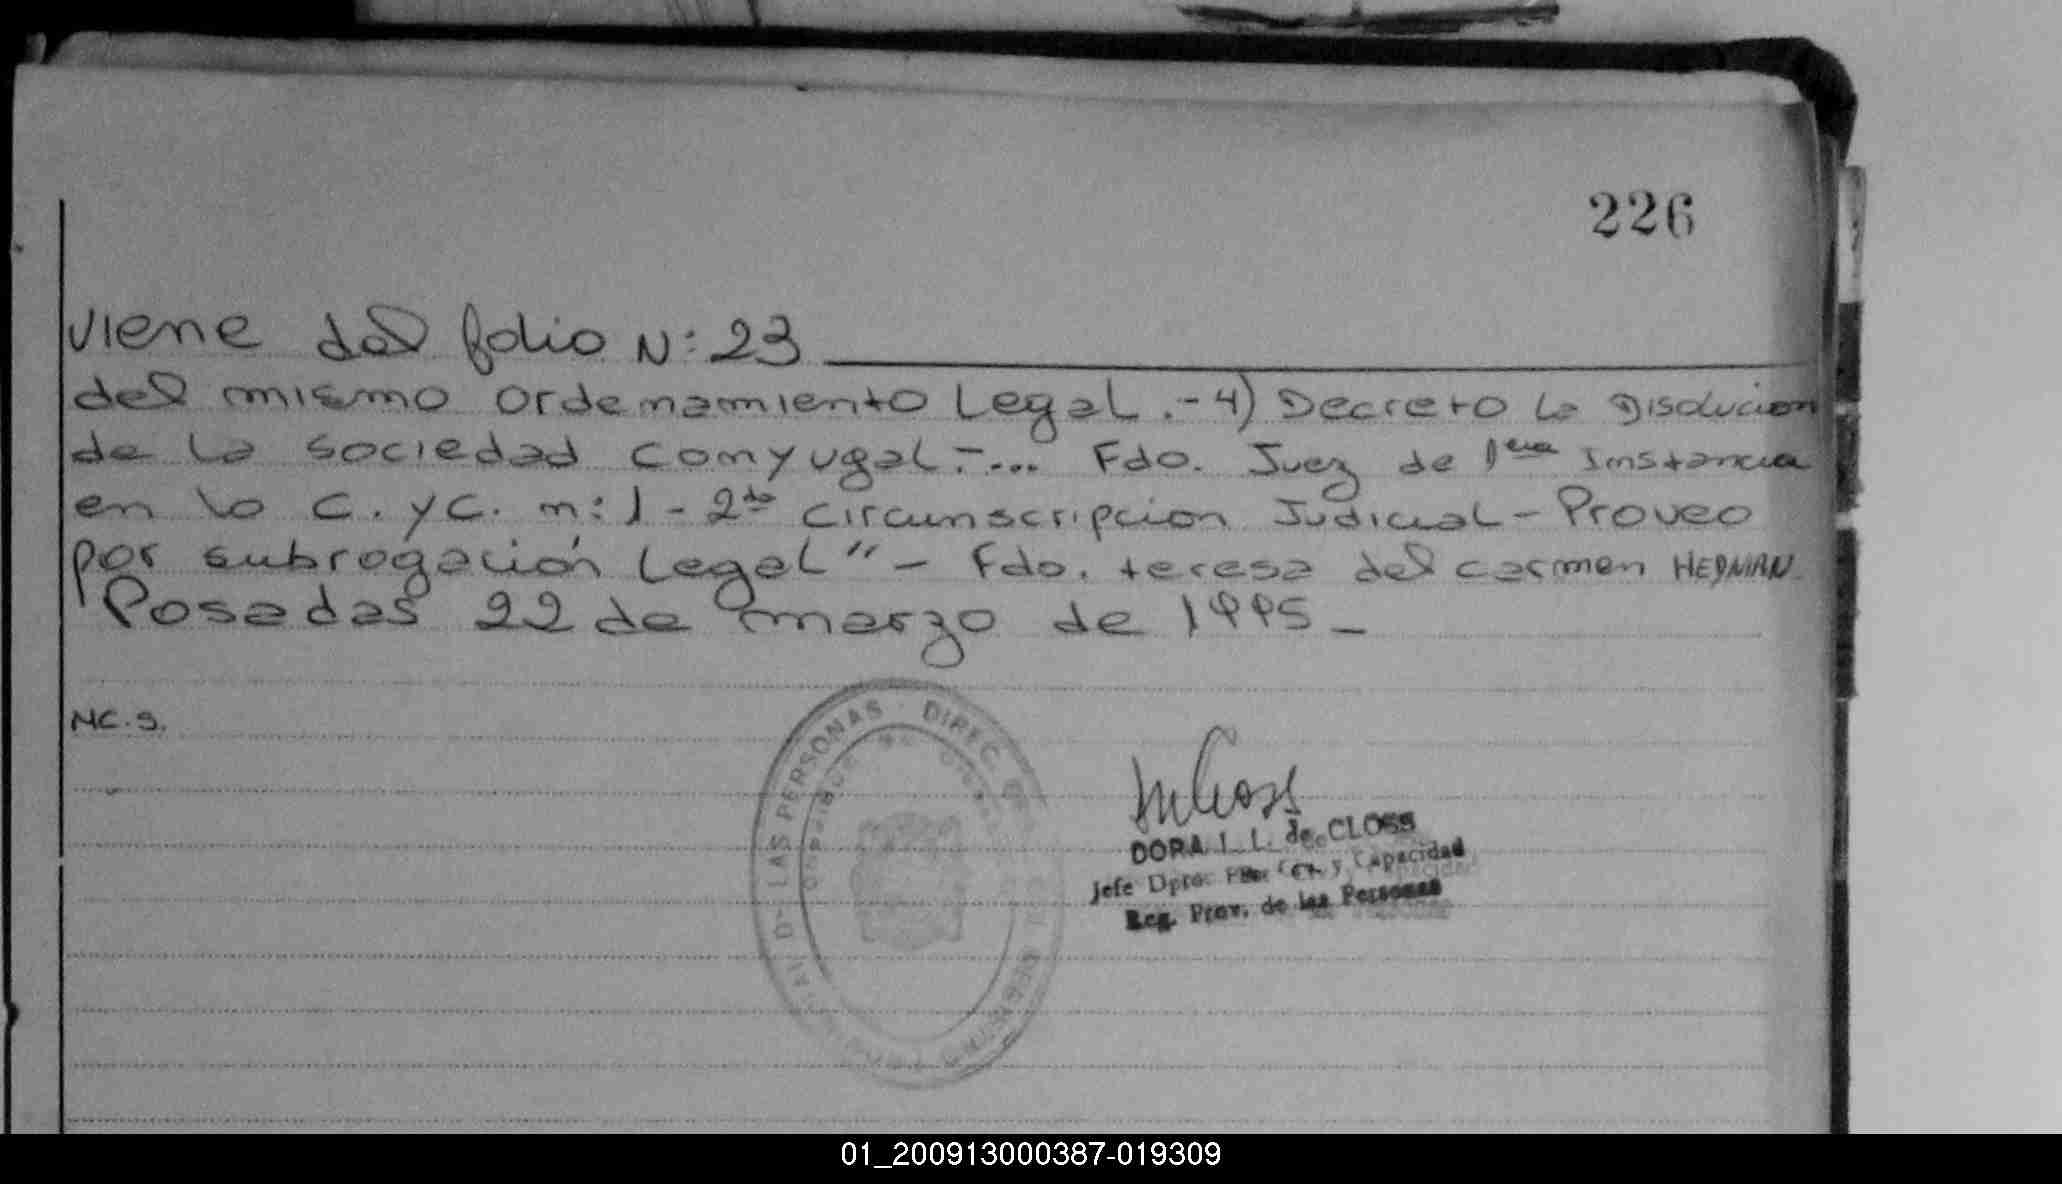 226
viene del folio N: 23
del mismo ordenamiento Legal.- 4) Decreto la Disolucion
de la sociedad conyugal.-... Fdo. Juez de 1era Instancia
en lo C. y C. n: 1 - 2da circunscripcion Judicial - Proveo
por subrogación Legal" - Fdo. teresa del carmen HEDMAN.
Posadas 22 de marzo de 1995 -
MC.S.
LAS PERSONAS · DIREC.
DORA I. L. de CLOSS
Jefe Dpto. y Capacidad
Reg. Prov. de las Personas
01_200913000387-019309